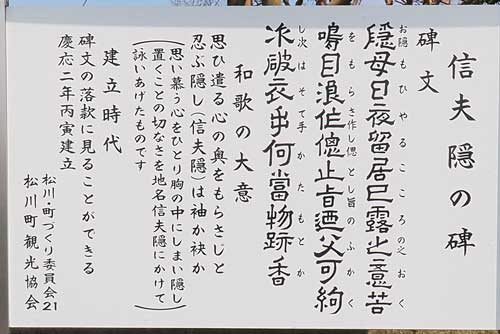 信夫隠の碑
碑文
お隠もひやるこころの之おく
隠母日夜留居巳露止意苦
をもらさ作し偲とし旨のふかく
鳴目浪作偲止旨迺父可絢
し次はそて手かたもとか
次破衣乎何當物跡香
和歌の大意
思ひ遣る心の奥をもらさじと
忍ぶ隠し(信夫隠)は袖か袂か
(思い慕う心をひとり胸の中にしまい隠し
置くことの切なさを地名信夫隠にかけて
詠いあげたものです)
建立時代
碑文の落款に見ることができる
慶応二年丙寅建立
松川・町づくり委員会21
松川町観光協会